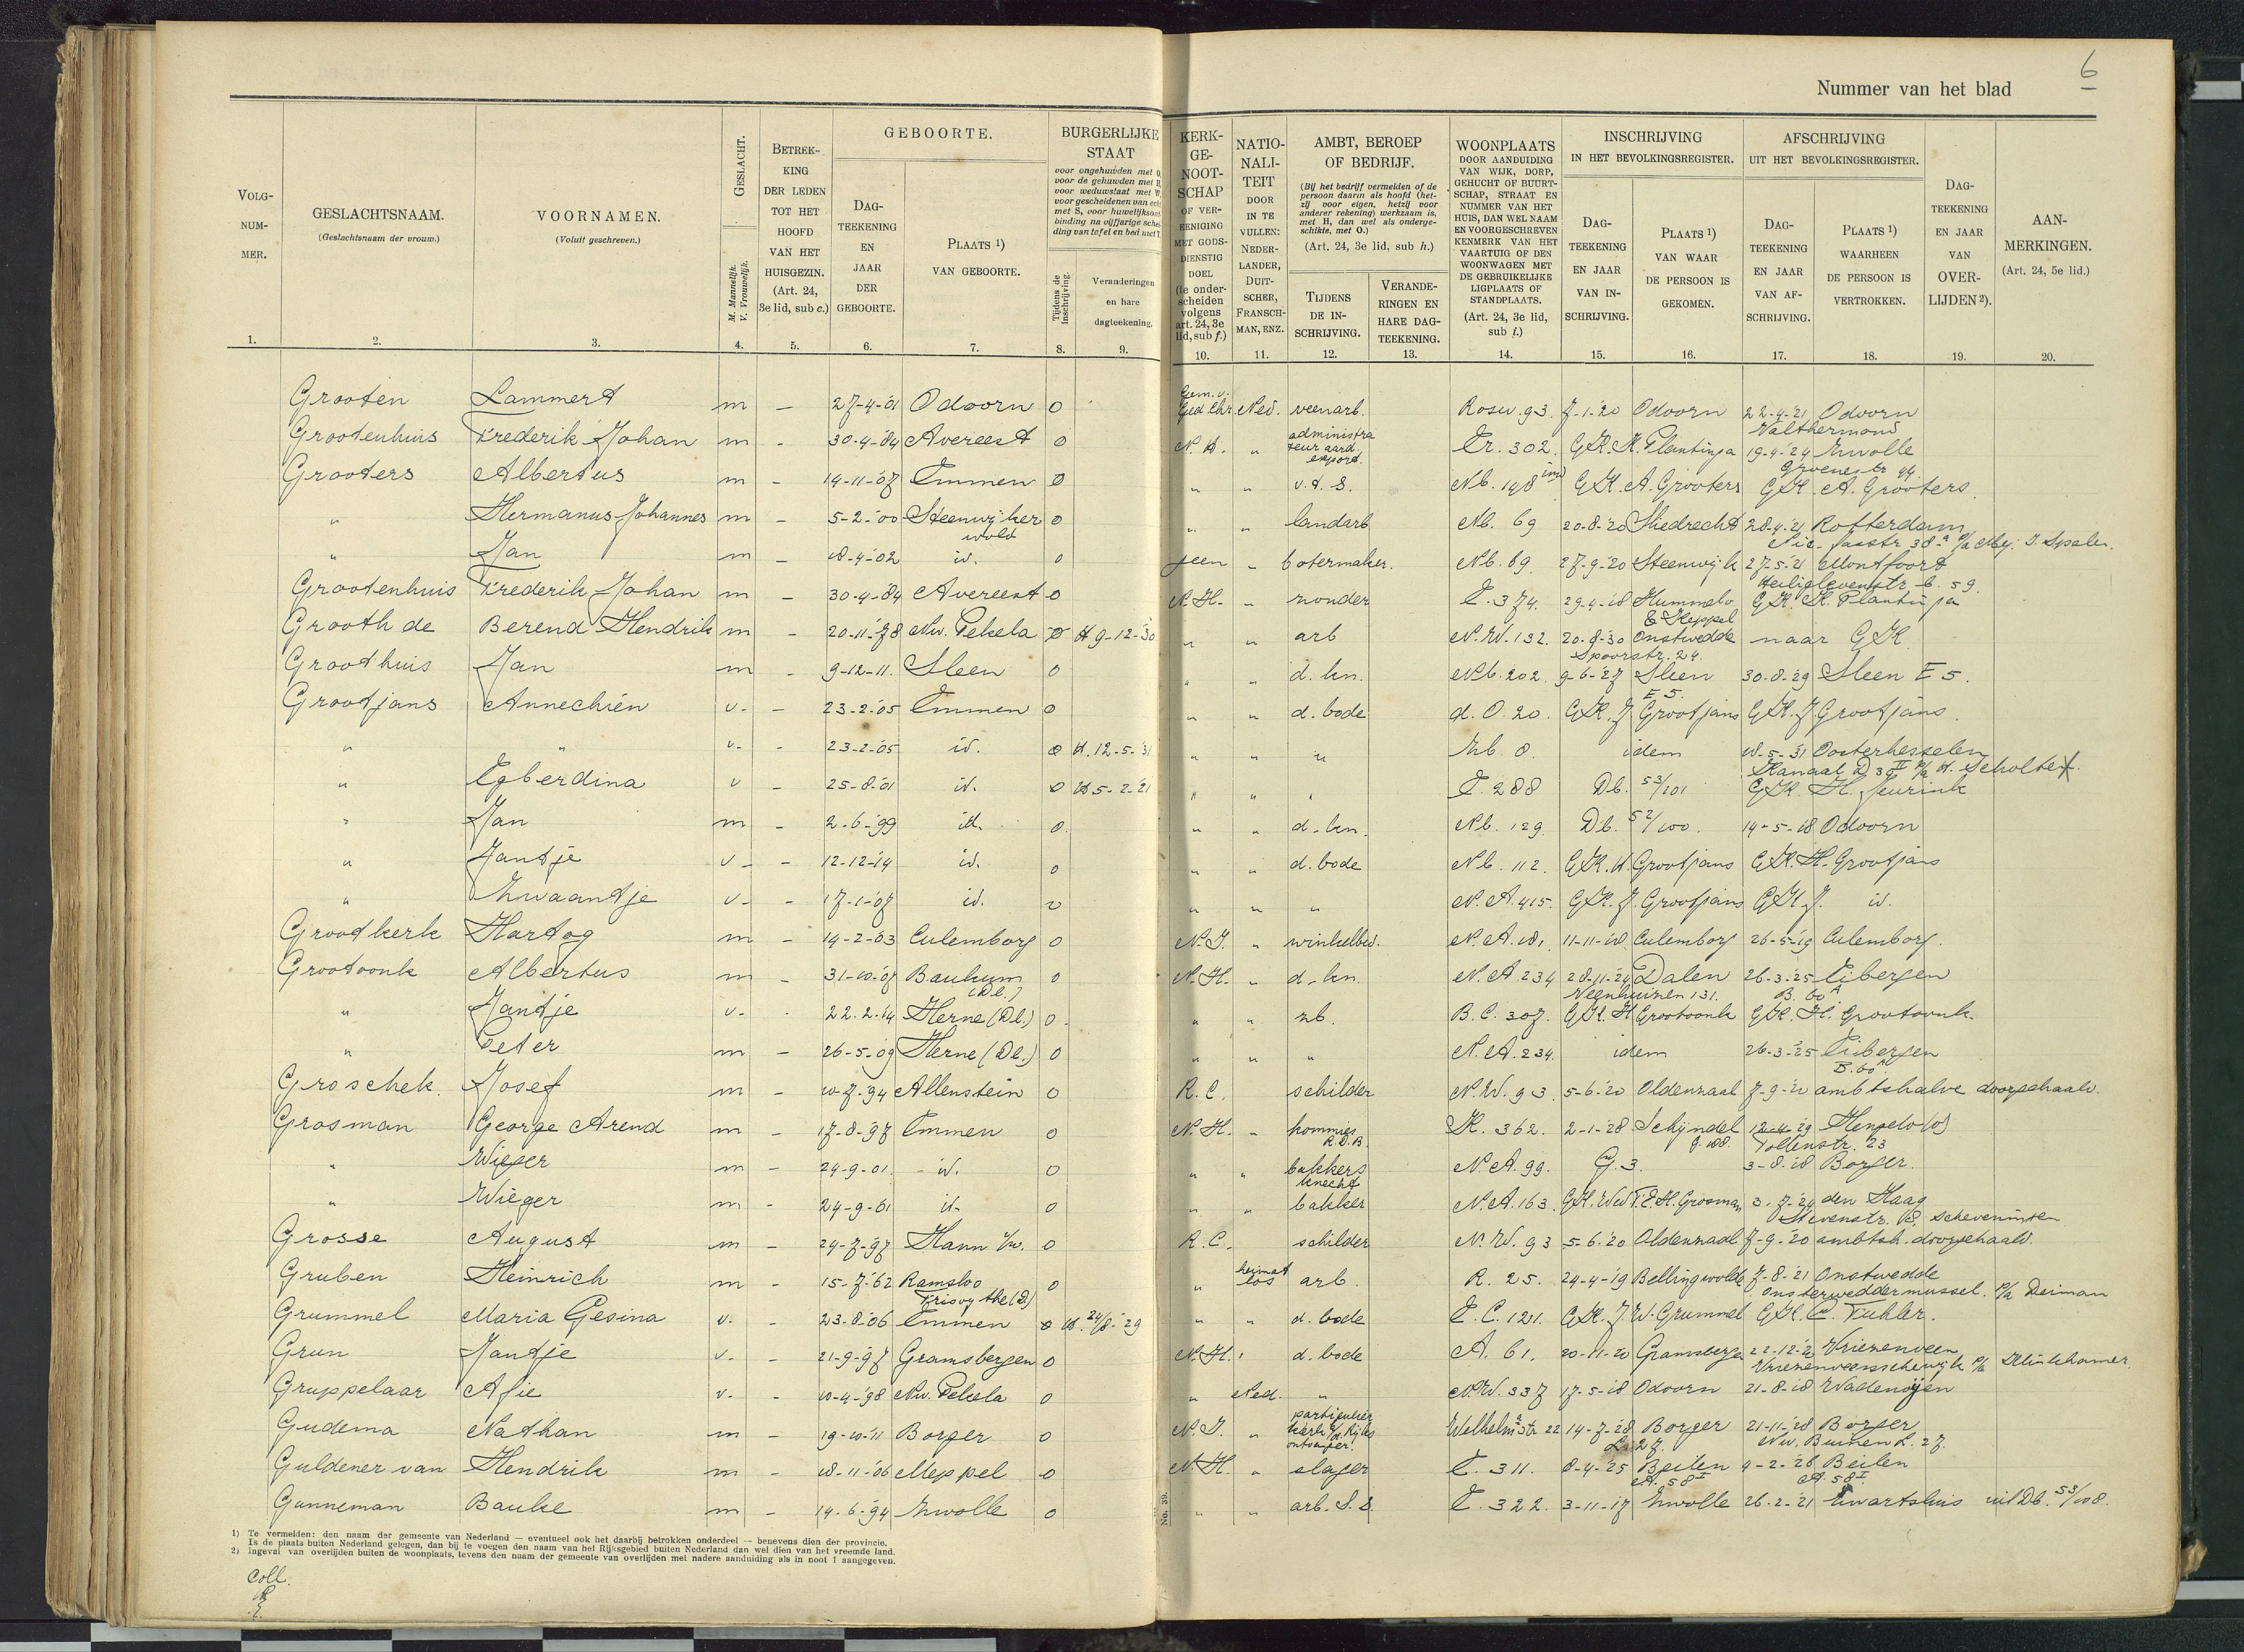 Nummer van het blad 6
VOLG-NUM-MER.
GESLACHTSNAAM. (Geslachtsnaam der vrouw.)
VOORNAMEN. (Voluit geschreven.)
GESLACHT. M. Mannelijk. V. Vrouwelijk.
BETREKKING DER LEDEN TOT HET HOOFD VAN HET HUISGEZIN. (Art. 24, 3e lid, sub c.)
GEBOORTE.
DAG-TEEKENING EN JAAR DER GEBOORTE.
PLAATS 1) VAN GEBOORTE.
BURGERLIJKE STAAT
Tijdens de inschrijving.
Veranderingen en hare dagteekening.
KERK-GE-NOOT-SCHAP OF VEREENIGING MET GODSDIENSTIG DOEL (te onderscheiden volgens art. 24, 3e lid, sub f.)
NATIO-NALI-TEIT DOOR IN TE VULLEN: NEDERLANDER, DUITSCHER, FRANSCHMAN, ENZ.
AMBT, BEROEP OF BEDRIJF.
(Bij het bedrijf vermelden of de persoon daarin als hoofd (hetzij voor eigen, hetzij voor anderer rekening) werkzaam is, met H, dan wel als ondergeschikte, met O.)
(Art. 24, 3e lid, sub h.)
TIJDENS DE INSCHRIJVING.
VERANDERINGEN EN HARE DAGTEEKENING.
WOONPLAATS DOOR AANDUIDING VAN WIJK, DORP, GEHUCHT OF BUURTSCHAP, STRAAT EN NUMMER VAN HET HUIS, DAN WEL NAAM EN VOORGESCHREVEN KENMERK VAN HET VAARTUIG OF DEN WOONWAGEN MET DE GEBRUIKELIJKE LIGPLAATS OF STANDPLAATS. (Art. 24, 3e lid, sub i.)
INSCHRIJVING IN HET BEVOLKINGSREGISTER.
DAG-TEEKENING EN JAAR VAN INSCHRIJVING.
PLAATS 1) VAN WAAR DE PERSOON IS GEKOMEN.
AFSCHRIJVING UIT HET BEVOLKINGSREGISTER.
DAG-TEEKENING EN JAAR VAN AFSCHRIJVING.
PLAATS 1) WAARHEEN DE PERSOON IS VERTROKKEN.
DAG-TEEKENING EN JAAR VAN OVERLIJDEN 2).
AANMERKINGEN. (Art. 24, 5e lid.)
1. 2. 3. 4. 5. 6. 7. 8. 9. 10. 11. 12. 13. 14. 15. 16. 17. 18. 19. 20.
Grooten Lammert m - 27-4-'01 Odoorn O Gem. v. Ged. Chr. Ned. veenarb. Rosw. 93 7-1-'20 Odoorn 22-4-'21 Odoorn Valthermond
Grootenhuis Frederik Johan m - 30-4-'84 Avereest O N.H. " administrateur aard. export. Er. 302. GK. K. Plantinga 19-4-'24 Zwolle Groenestr 44.
Grooters Albertus m - 14-11-'07 Emmen O " " v.d.S. Nb. 198 GK. A. Grooters GK. A. Grooters
" Hermanus Johannes m - 5-2-'00 Steenwijkerwold O " " landarb Nb. 69 20-8-'20 Sliedrecht 28-4-'21 Rotterdam
" Jan m - 18-4-'02 id. O geen " botermaker. Nb. 69 27-9-'20 Steenwijk 27-5-'21 Montfoort
Grootenhuis Frederik Johan m - 30-4-'84 Avereest O N.H. " zonder E. 374. 29-4-'18 Hummelo & Keppel GK. K. Plantinga
Grooth de Berend Hendrik m - 20-11-'78 Nw. Pekela O H 9-12-'30 " " arb N.W. 132. 20-8-'30 Onstwedde Spoorstr. 24. naar GK.
Groothuis Jan m - 9-12-11. Sleen O " " d. kn. Nb. 202 9-6-'27 Sleen E 5. 30-8-'29 Sleen E 5.
Grootjans Annechien v. - 23-2-'05 Emmen O " " d. bode d. O. 20. GK. J Grootjans GK. J Grootjans.
" " v. - 23-2-'05 id. O H. 12-5-'31 " " " Zb. 0. idem 18-5-'31 Oosterhesselen Kanaal D 39 II p/a H. Scholten.
" Egberdina v - 25-8-'01 id. O H 5-2-'21 " " " E. 288 Db. 53/101 GK. H. Jeurink
" Jan m - 2-6-'99 id. O. " " d. kn. Nb. 129. Db. 52/100. 14-5-'18 Odoorn
" Jantje v - - 12-12-'14 id. O " " d. bode Nb. 112. GK. H. Grootjans GK. H. Grootjans
" Zwaantje v - - 17-1-'07 id. O " " " N.A. 415. GK. J. Grootjans GK. J. id.
Grootkerk Hartog m - 14-2-'03 Culemborg O N.I. " winkelbed. N.A. 181. 11-11-'18 Culemborg 26-5-'19 Culemborg.
Grootoonk Albertus m - 31-10-'07 Baukum (Dl.) O N.H. " d. kn. N.A 234 28-11-'24 Dalen Veenhuizen 131. 26-3-'25 Eibergen B. 60 A
" Jantje v. - 22-2-'14 Herne (Dl.) O " " zb. B.C. 307. GK. H Grootoonk GK. H. Grootoonk.
" Peter m - 26-5-'09 Herne (Dl.) O " " " N.A. 234. idem 26-3-'25 Eibergen B. 60 A
Groschek. Josef m - 10-7-'94 Allenstein O R.C. schilder N.W. 93. 5-6-'20 Oldenzaal 7-9-'20 ambtshalve doorgehaald.
Grosman George Arend m - 17-8-'97 Emmen O N.H. " kommies R.D.B K. 362. 2-1-'28 Schijndel 12-4-'29 Hengelo (O) Tollenstr. 23
" Wieger m - 24-9-01. id. O " " bakkersknecht N.A. 99. G. 3. 3-8-'18 Borger.
" Wieger m - 24-9-01 id. O " " bakker N.A. 163. GK. Wed T.E.H. Grosman 3-7-'24 den Haag Stevenstr. 18, Scheveningen
Grosse August m - 24-7-'97 Hann. O R.C. schilder N.W. 93 5-6-'20 Oldenzaal 7-9-'20 ambtsh. doorgehaald.
Gruben Heinrich m - 15-7-'62 Ramsloo Frisoythe (D.) O " heimatlos arb. R. 25. 24-4-'19 Bellingwolde 7-8-'21 Onstwedde Onsterweddermussel. p/a Deiman
Grummel Maria Gesina v. - 23-8-'06 Emmen O H. 24/8-'29 " " d. bode E.C. 121. GK. J W. Grummel GK. C. Fuhler.
Grun Jantje v. - 21-9-'97 Gramsbergen O N.H. " d. bode A. 61. 20-11-20 Gramsbergen 22-12-'21 Vriezenveen Vriezenveenschewijk p/a Klinkhamer
Gruppelaar Afie v. - 10-4-'98 Nw. Pekela O " Ned. " N.W. 337 17-5-'18 Odoorn 21-8-'18 Wadenoijen
Gudema Nathan m - 19-10-'11 Borger O N.I. " particulier klerk v/d. Rijksontvanger. Wilhelminastr 22 14-7-'28 Borger L. 27. 21-11-'28 Borger Nw. Buinen L. 27.
Guldener van Hendrik m - 18-11-'06 Meppel O N.H. " slager E. 311. 8-4-'25 Beilen A. 58 I 4-2-'26 Beilen A. 58 I.
Gunneman Bauke m - 14-6-'94 Zwolle O " " arb. S.S. E. 322. 3-11-17 Zwolle 26-2-'21 Zwartsluis uit Db. 53/108.
1) Te vermelden: den naam der gemeente van Nederland — eventueel ook het daarbij betrokken onderdeel — benevens dien der provincie.
Is de plaats buiten Nederland gelegen, dan bij te voegen den naam van het Rijksgebied buiten Nederland dan wel dien van het vreemde land.
2) Ingeval van overlijden buiten de woonplaats, tevens den naam der gemeente van overlijden met nadere aanduiding als in noot 1 aangegeven.
No. 39.
Coll.